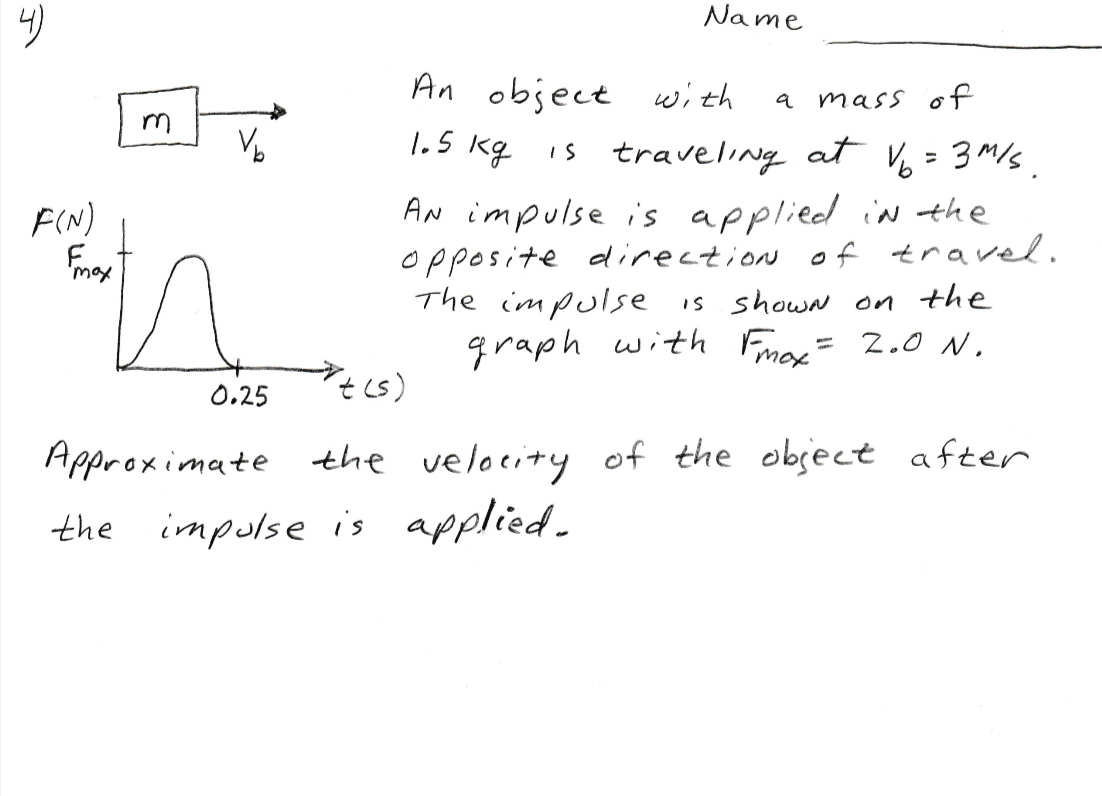 4)
Name
m
V_b
An object with a mass of
1.5 kg is traveling at V_b = 3 m/s.
An impulse is applied in the
opposite direction of travel.
The impulse is shown on the
graph with F_max = 2.0 N.
F(N)
F_max
0.25
t(s)
Approximate the velocity of the object after
the impulse is applied.